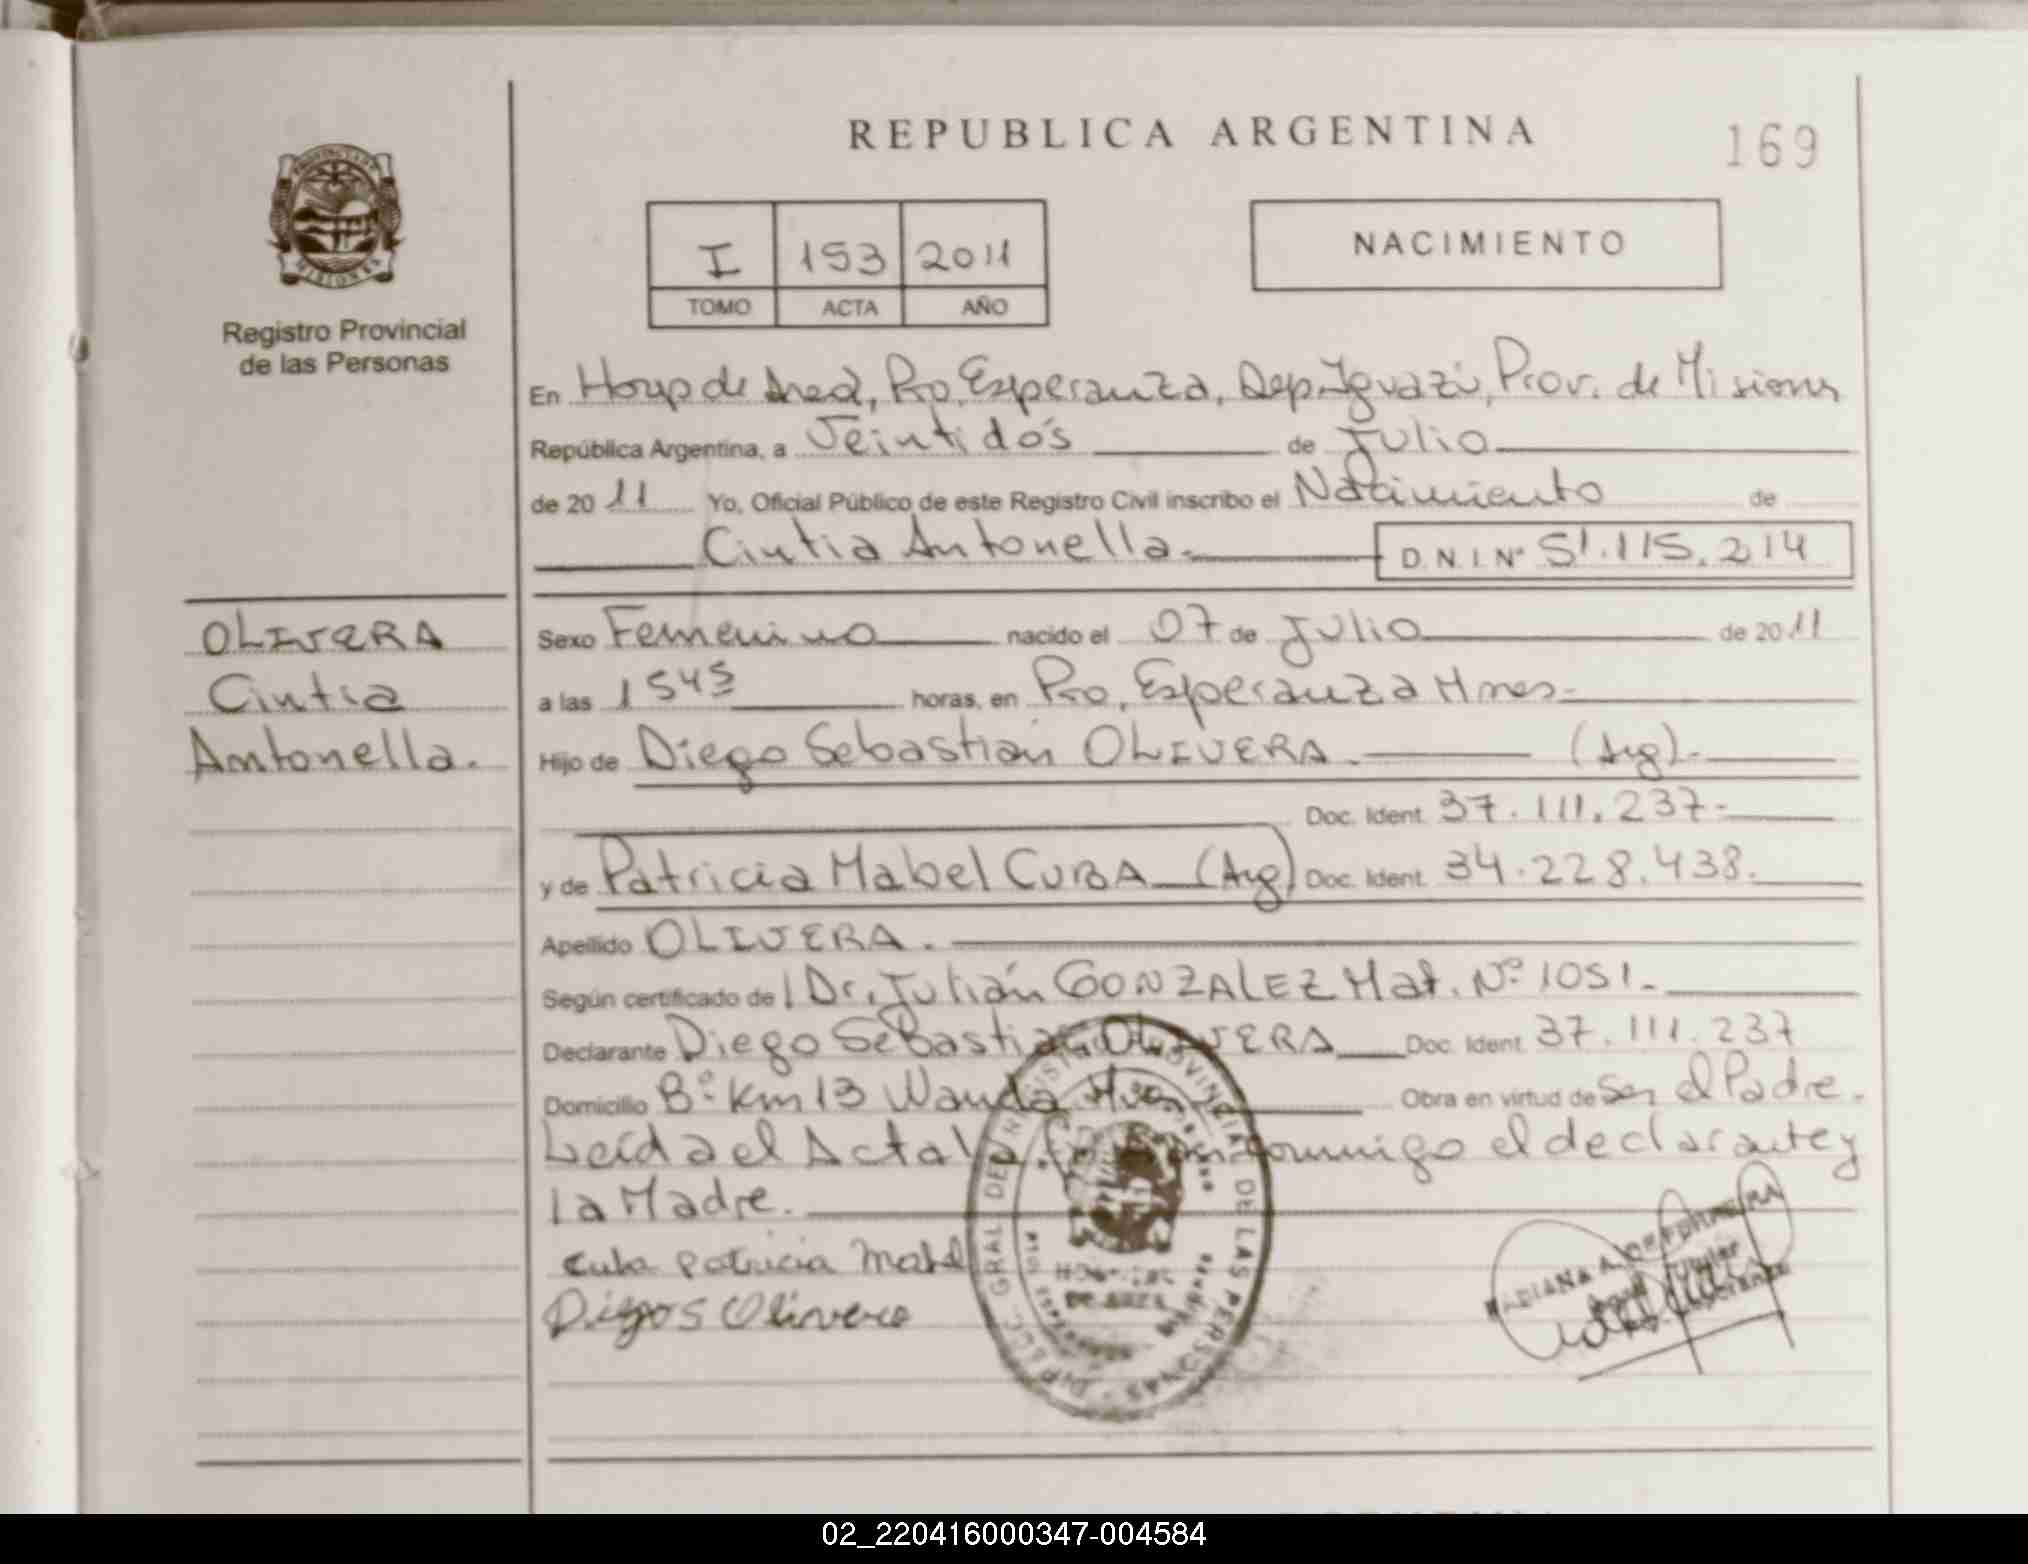 REPUBLICA ARGENTINA
169
PROVINCIA DE
MISIONES
Registro Provincial
de las Personas
I 153 2011
TOMO ACTA AÑO
NACIMIENTO
En Hosp de Area, Pto. Esperanza, Dep. Iguazú, Prov. de Misiones
República Argentina, a Veintidós de Julio
de 2011 Yo, Oficial Público de este Registro Civil inscribo el Nacimiento de
Cintia Antonella.
D.N.I. Nº 51.115.214
OLIVERA
Cintia
Antonella.
Sexo Femenino nacido el 07 de Julio de 2011
a las 1545 horas, en Pto. Esperanza Mnes-
Hijo de Diego Sebastián OLIVERA. (Arg).-
Doc. Ident. 37.111.237-
y de Patricia Mabel CUBA (Arg) Doc. Ident. 34.228.438.
Apellido OLIVERA.
Según certificado de Dr. Julián GONZALEZ Mat. Nº 1051.-
Declarante Diego Sebastián OLIVERA Doc. Ident. 37.111.237
Domicilio Bº Km 13 Wanda Mnes Obra en virtud de Ser el Padre.
Leída el Acta la firman conmigo el declarante y
la Madre.
Cuba Patricia Mabel
Diego S Olivera
GRAL. DEL REGISTRO PROVINCIAL DE LAS PERSONAS
DE AREA
02_220416000347-004584